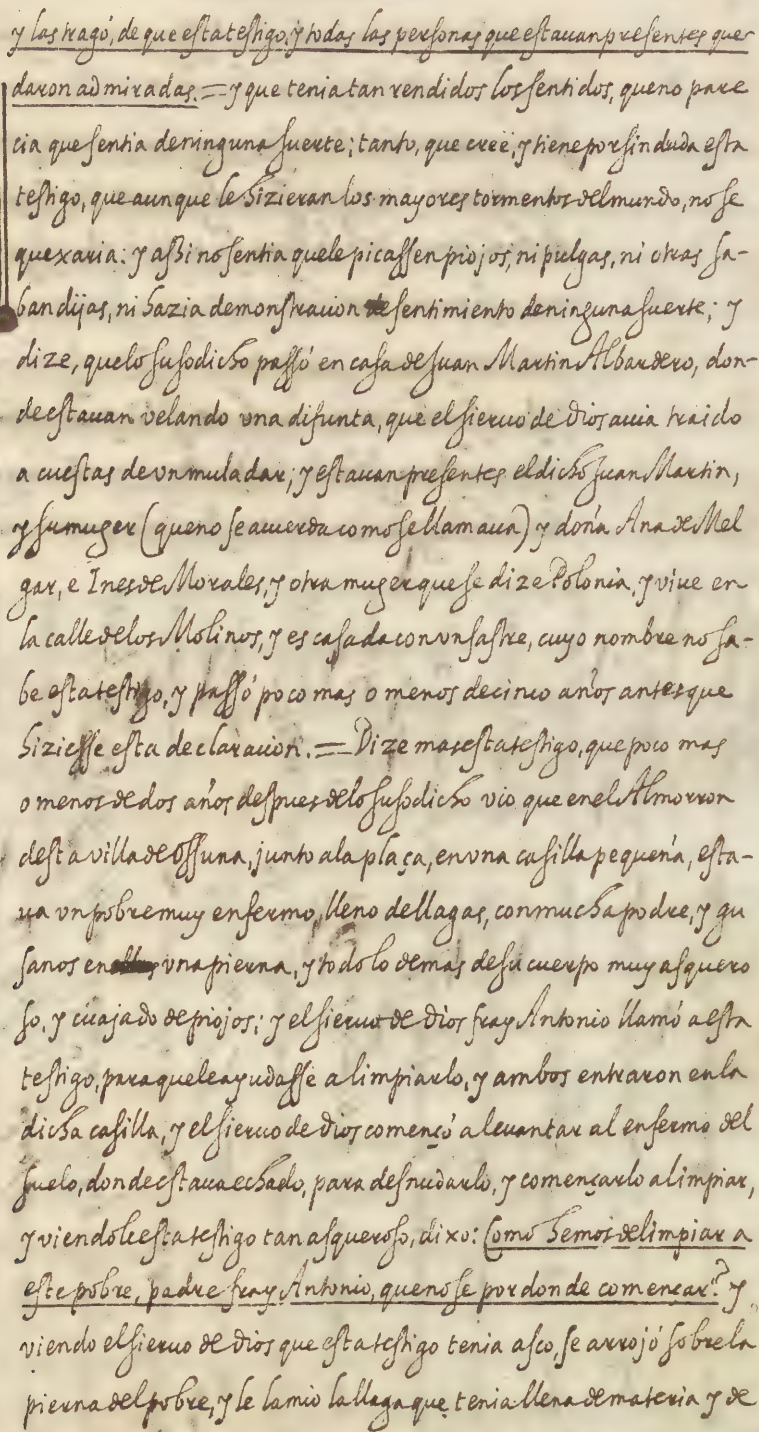 y las tragó, de que esta testigo, y todas las personas que estauan presentes que-
daron admiradas. = y que tenia tan rendidos los sentidos, que no pare
cia que sentia de ninguna suerte; tanto, que creè, y tiene por sin duda esta
testigo, que aunque le hizieran los mayores tormentos del mundo, no se
quexaria: y assi no sentia que le picassen piojos, ni pulgas, ni otras sa-
bandijas, ni hazia demonstracion de sentimiento de ninguna suerte; y
dize, que lo susodicho passó en casa de Juan Martin Albardero, don-
de estauan velando vna difunta, que el sieruo de Dios auia traido
a cuestas de vn muladar; y estauan presentes el dicho Juan Martin,
y su muger (que no se acuerda como se llamaua) y doña Ana de Mel
gar, e Ines de Morales, y otra muger que se dize Polonia, y viue en
la calle de los Molinos, y es casada con vn sastre, cuyo nombre no sa-
be esta testigo, y passó poco mas o menos de cinco años antes que
hiziesse esta declaracion. = Dize mas esta testigo, que poco mas
o menos de dos años despues de lo susodicho vio que en el Almorron
desta villa de Ossuna, junto a la plaça, en vna casilla pequeña, esta-
ua vn pobre muy enfermo, lleno de llagas, con mucha podre, y gu
sanos en vna pierna, y todo lo demas de su cuerpo muy asquero
so, y cuajado de piojos; y el sieruo de Dios fray Antonio llamó a esta
testigo, para que le ayudasse a limpiarlo, y ambos entraron en la
dicha casilla, y el sieruo de Dios començó a leuantar al enfermo del
suelo, donde estaua echado, para desnudarlo, y començarlo a limpiar,
y viendole esta testigo tan asqueroso, dixo: Como hemos de limpiar a
este pobre, padre fray Antonio, que no se por donde començar? y
viendo el sieruo de Dios que esta testigo tenia asco, se arrojó sobre la
pierna del pobre, y le lamio la llaga que tenia llena de materia y de